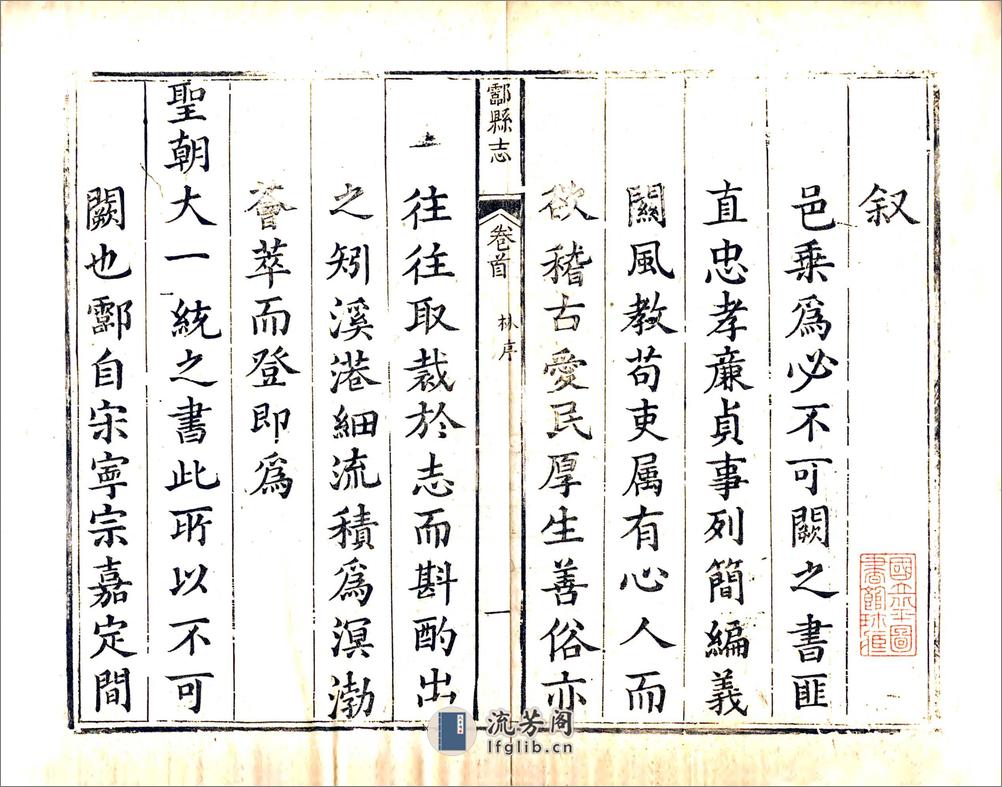 叙
邑乗爲必不可闕之書匪
直忠孝亷貞事列簡編義
闗風教苟吏属有心人而
欲稽古愛民厚生善俗亦
酃縣志
卷首
林序
一
往往取裁於志而斟酌出
之矧溪港細流積爲溟渤
薈萃而登即爲
聖朝大一統之書此所以不可
闕也酃自宋寧宗嘉定間
國立北平圖
書館珍藏
流芳阁
lfglib.cn